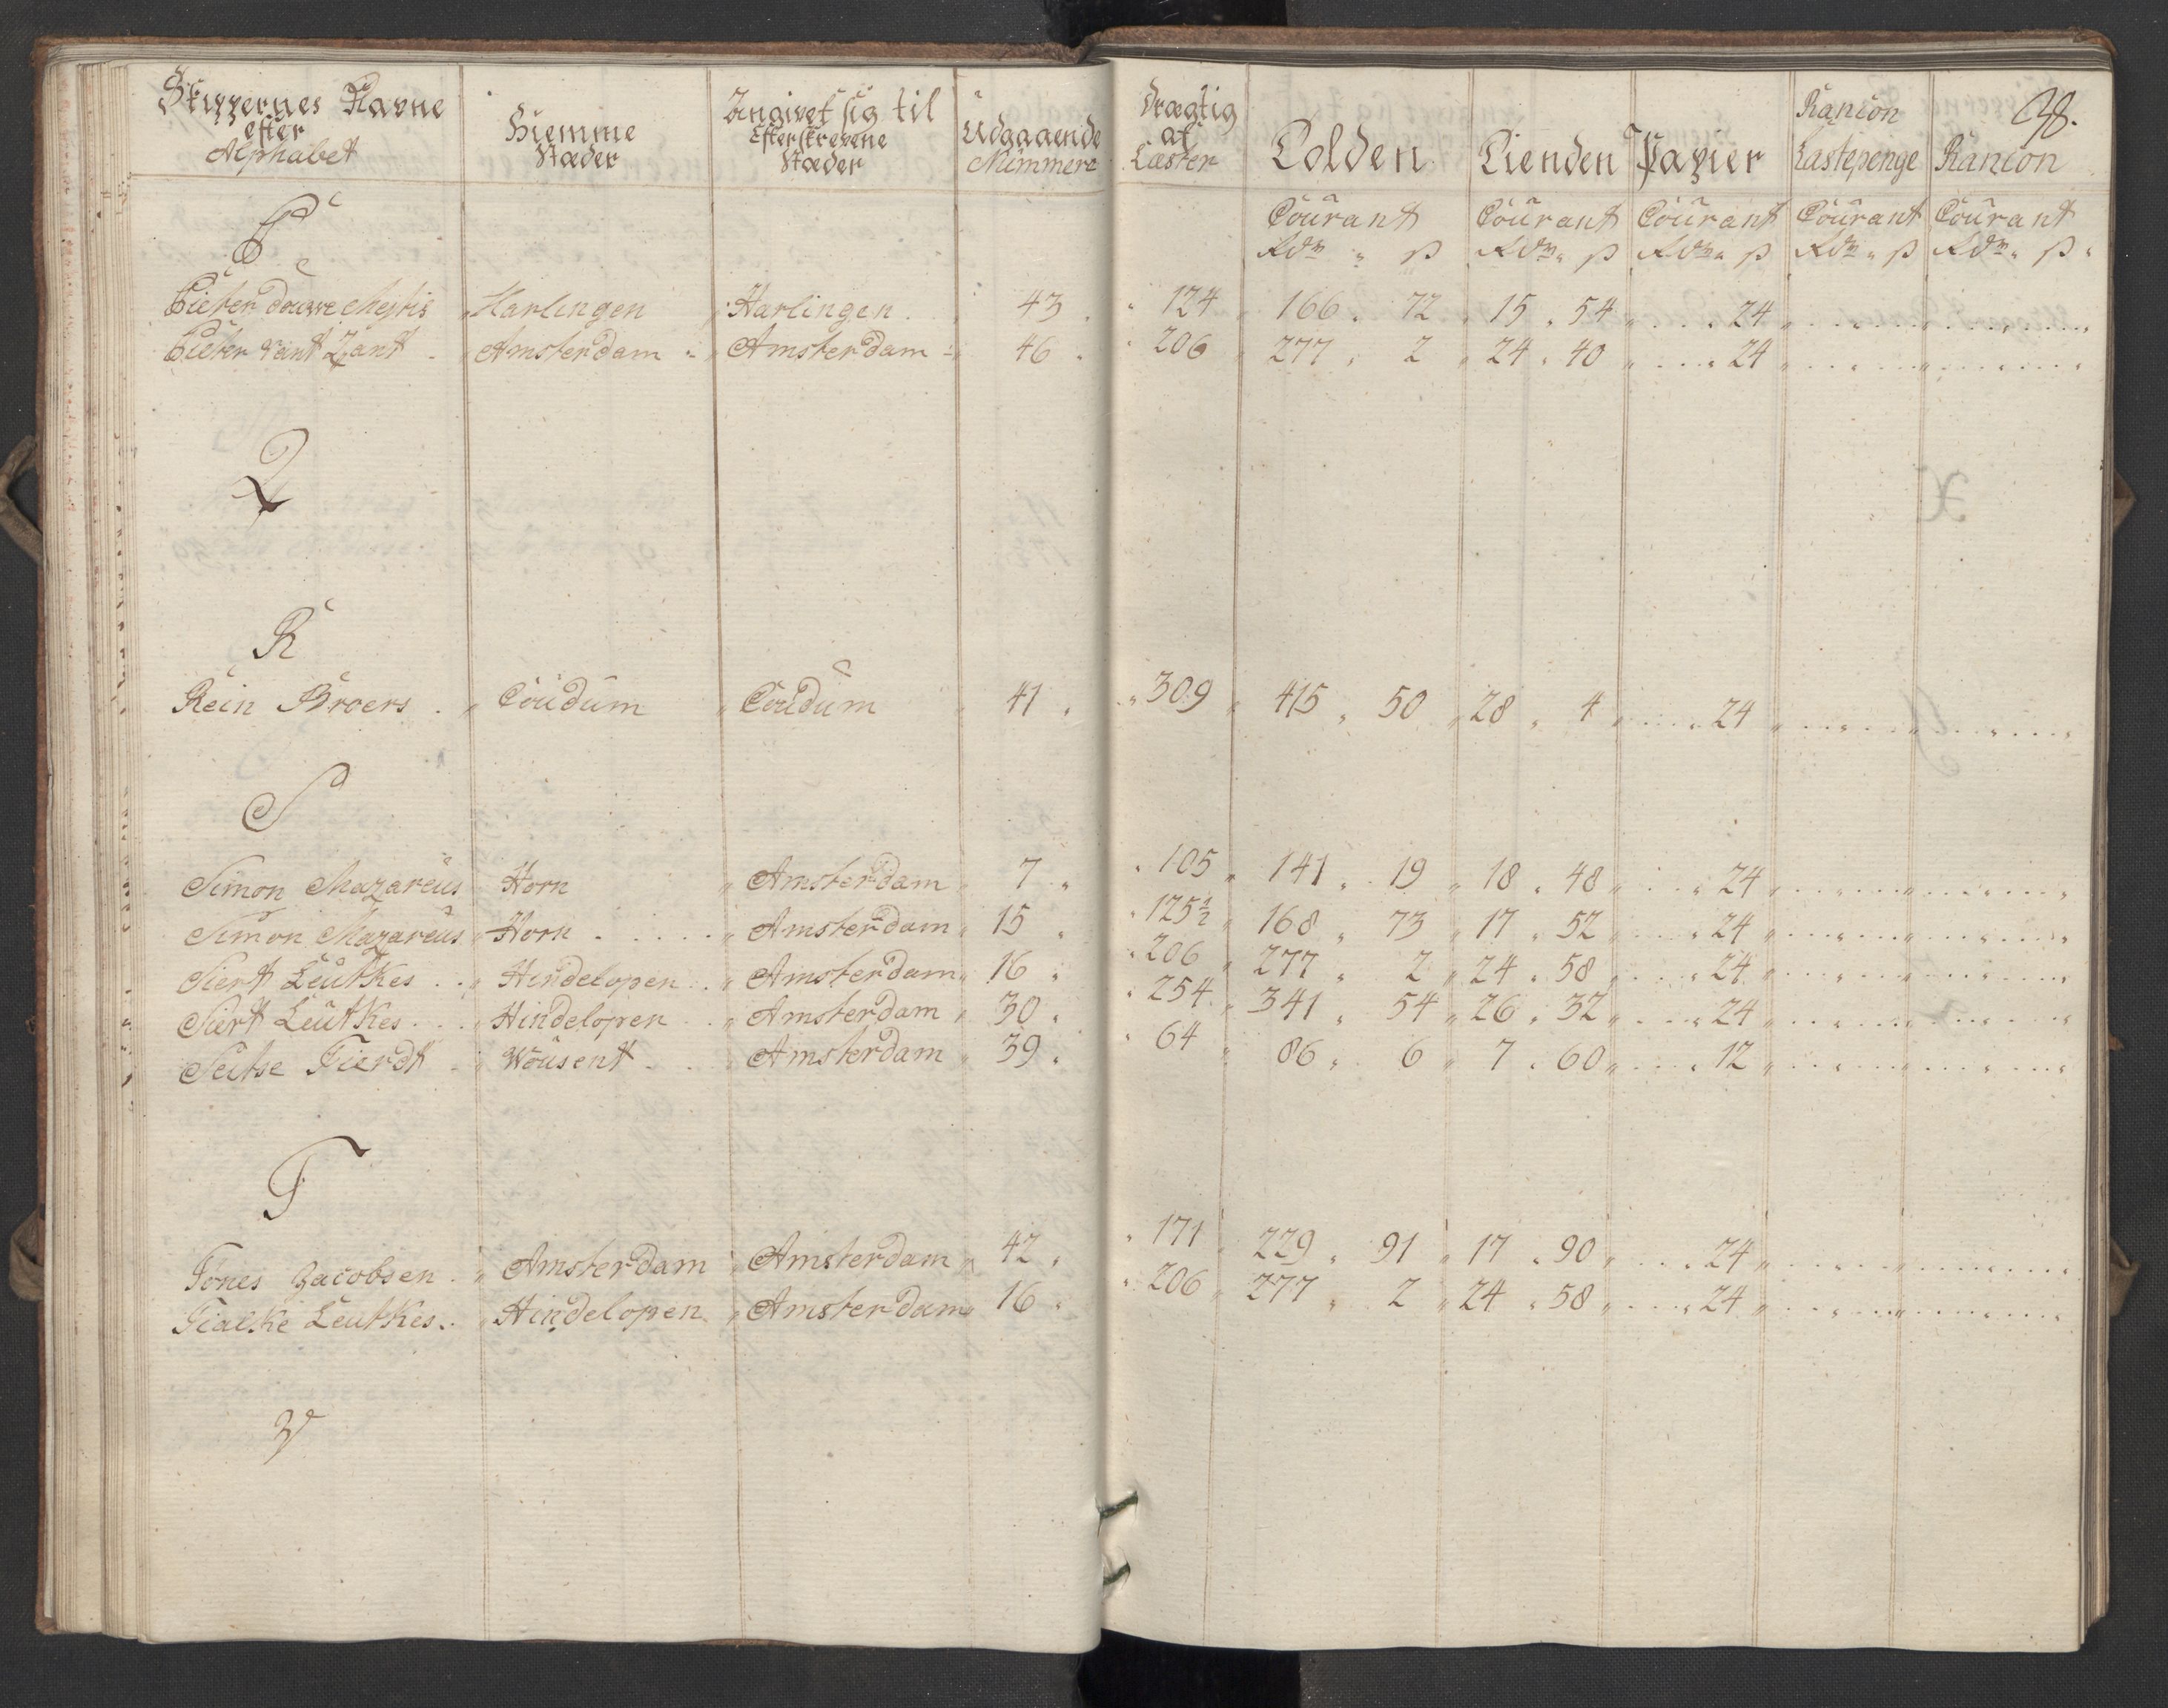 Skippernes Navne efter Alphabet | Hiemme Stæder | Angivet sig til Efterskrevene Stæder | Udgaaende Nummere | Drægtig af Læster | Tolden | Tienden | Papier | Rancon Lastepenge | Rancon
28.
Courant | Courant | Courant | Courant | Courant
Rdr " ß | Rdr " ß | Rdr " ß | Rdr " ß | Rdr " ß
P
Pieter douwe | Harlingen | Harlingen | 43 | 124 | 166 " 72 | 15 " 54 | 24
Pieter vant Zant | Amsterdam | Amsterdam | 46 | 206 | 277 " 2 | 24 " 40 | 24
Q
R
Rein Broers | Coudum | Coudum | 41 | 309 | 415 " 50 | 28 " 4 | 24
S
Simon Mazareus | Horn | Amsterdam | 7 | 105 | 141 " 19 | 18 " 48 | 24
Simon Mazareus | Horn | Amsterdam | 15 | 125½ | 168 " 73 | 17 " 52 | 24
Siert Leutkes | Hindelopen | Amsterdam | 16 | 206 | 277 " 2 | 24 " 58 | 24
Siert Leutkes | Hindelopen | Amsterdam | 30 | 254 | 341 " 54 | 26 " 32 | 24
Seitse Tierdt | Wousent | Amsterdam | 39 | 64 | 86 " 6 | 7 " 60 | 12
T
Tönes Jacobsen | Amsterdam | Amsterdam | 42 | 171 | 229 " 91 | 17 " 90 | 24
Tialke Leutkes | Hindelopen | Amsterdam | 16 | 206 | 277 " 2 | 24 " 58 | 24
V